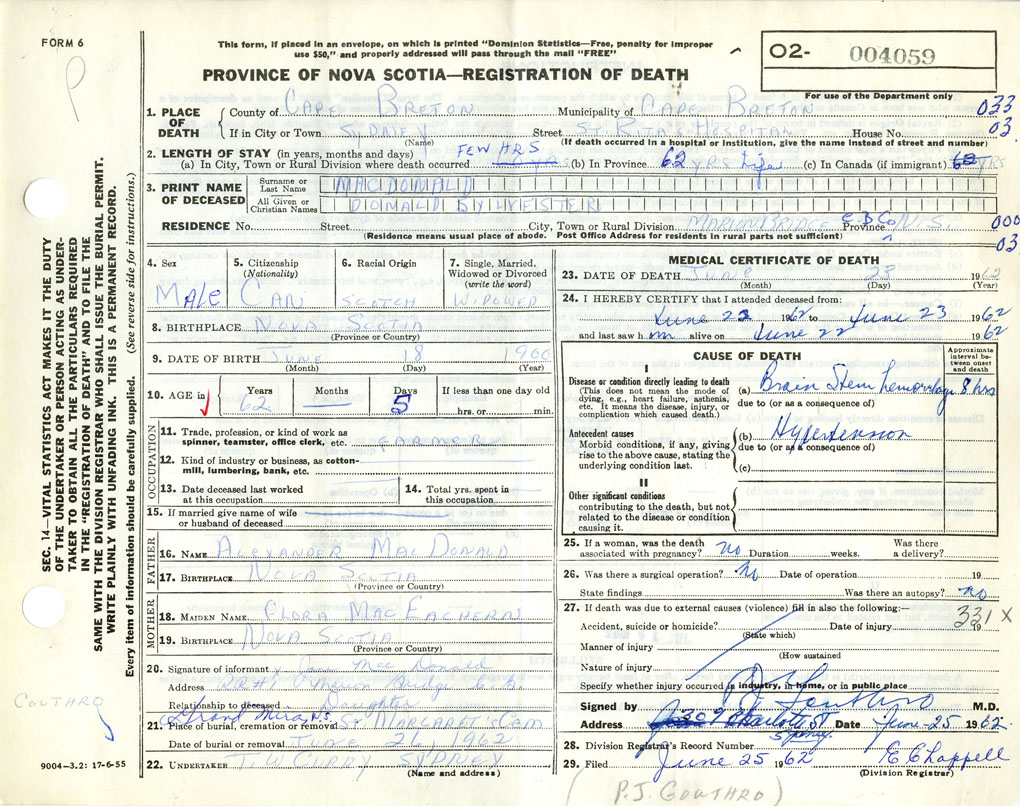 FORM 6
This form, if placed in an envelope, on which is printed "Dominion Statistics—Free, penalty for improper
use $50," and properly addressed will pass through the mail "FREE"
O2- 004059
PROVINCE OF NOVA SCOTIA—REGISTRATION OF DEATH
For use of the Department only
1. PLACE OF DEATH { County of CAPE BRETON Municipality of CAPE BRETON 033
If in City or Town SYDNEY Street ST. RITA'S HOSPITAL House No. 03
(Name) (If death occurred in a hospital or institution, give the name instead of street and number)
2. LENGTH OF STAY (in years, months and days) FEW HRS
(a) In City, Town or Rural Division where death occurred (b) In Province 62 YRS (c) In Canada (if immigrant) YRS
3. PRINT NAME OF DECEASED { Surname or Last Name MACDONALD
All Given or Christian Names DONALD SYLVESTER
RESIDENCE No. Street City, Town or Rural Division MARION BRIDGE C.B.Co Province N.S. 000
(Residence means usual place of abode. Post Office Address for residents in rural parts not sufficient) 03
4. Sex MALE
5. Citizenship (Nationality) CAN
6. Racial Origin SCOTCH
7. Single, Married, Widowed or Divorced (write the word) WIDOWED
8. BIRTHPLACE NOVA SCOTIA
(Province or Country)
9. DATE OF BIRTH JUNE 18 1900
(Month) (Day) (Year)
10. AGE in Years 62 Months — Days 5 If less than one day old
hrs. or min.
OCCUPATION
11. Trade, profession, or kind of work as
spinner, teamster, office clerk, etc. FARMER
12. Kind of industry or business, as cotton-
mill, lumbering, bank, etc.
13. Date deceased last worked
at this occupation.
14. Total yrs. spent in
this occupation.
15. If married give name of wife
or husband of deceased
FATHER
16. NAME ALEXANDER MACDONALD
17. BIRTHPLACE NOVA SCOTIA
(Province or Country)
MOTHER
18. MAIDEN NAME FLORA MACEACHERN
19. BIRTHPLACE NOVA SCOTIA
(Province or Country)
20. Signature of informant Mac Donald
Address Marion Bridge C.B.
Relationship to deceased Daughter
Grand Mira N.S.
21. Place of burial, cremation or removal ST. MARGARET'S CEM
Date of burial or removal JUNE 26 1962
22. UNDERTAKER T.W CURRY SYDNEY
(Name and address)
MEDICAL CERTIFICATE OF DEATH
23. DATE OF DEATH JUNE 23 1962
(Month) (Day) (Year)
24. I HEREBY CERTIFY that I attended deceased from:
June 23 1962 to June 23 1962
and last saw him alive on June 22 1962
CAUSE OF DEATH
Approximate interval between onset and death
I
Disease or condition directly leading to death
(This does not mean the mode of
dying, e.g., heart failure, asthenia,
etc. It means the disease, injury, or
complication which caused death.)
(a) Brain Stem hemorrhage 8 hrs
due to (or as a consequence of)
Antecedent causes
Morbid conditions, if any, giving
rise to the above cause, stating the
underlying condition last.
(b) Hypertension
due to (or as a consequence of)
(c)
II
Other significant conditions
contributing to the death, but not
related to the disease or condition
causing it.
25. If a woman, was the death Was there
associated with pregnancy? no Duration weeks. a delivery?
26. Was there a surgical operation? No Date of operation 19
State findings Was there an autopsy? no
27. If death was due to external causes (violence) fill in also the following:— 331 X
Accident, suicide or homicide? Date of injury 19
(State which)
Manner of injury
(How sustained
Nature of injury
Specify whether injury occurred in industry, in home, or in public place
Signed by Gouthro M.D.
Address 309 Charlotte St Date June 25 1962
Sydney
28. Division Registrar's Record Number
29. Filed June 25 1962 E Chappell
(Division Registrar)
(P.J. GOUTHRO)
SEC. 14—VITAL STATISTICS ACT MAKES IT THE DUTY
OF THE UNDERTAKER OR PERSON ACTING AS UNDER-
TAKER TO OBTAIN ALL THE PARTICULARS REQUIRED
IN THE "REGISTRATION OF DEATH" AND TO FILE THE
SAME WITH THE DIVISION REGISTRAR WHO SHALL ISSUE THE BURIAL PERMIT.
WRITE PLAINLY WITH UNFADING INK. THIS IS A PERMANENT RECORD.
Every item of information should be carefully supplied. (See reverse side for instructions.)
GOUTHRO
9004-3.2: 17-6-55